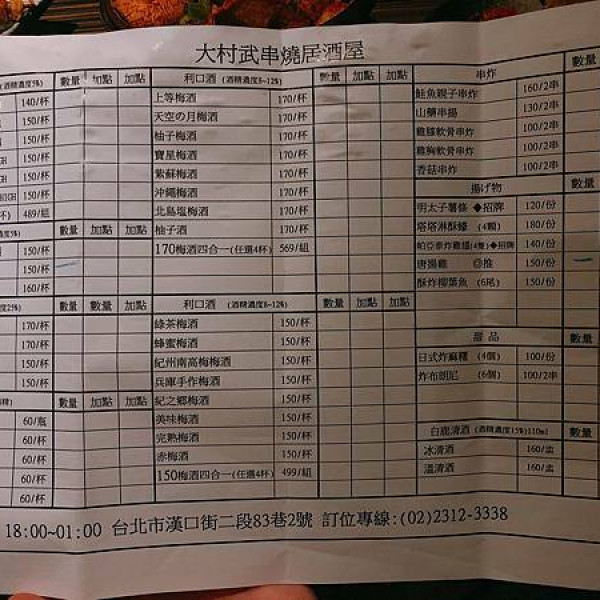 大村武串燒居酒屋
酒精濃度5%) 數量 加點 加點
140/杯
150/杯
150/杯
150/杯
150/杯
150/杯
489/組
數量 加點 加點
150/杯
150/杯
160/杯
數量 數量 加點
170/杯
150/杯
150/杯
150/杯
數量 加點 加點
60/瓶
60/杯
60/杯
60/杯
60/杯
利口酒 (酒精濃度8~12%) 數量 加點 加點
上等梅酒 170/杯
天空の月梅酒 170/杯
柚子梅酒 170/杯
寶星梅酒 170/杯
紫蘇梅酒 170/杯
沖繩梅酒 170/杯
北島塩梅酒 170/杯
柚子酒 170/杯
170梅酒四合一(任選4杯) 569/組
利口酒 (酒精濃度8~12%) 數量 加點 加點
綠茶梅酒 150/杯
蜂蜜梅酒 150/杯
紀州南高梅梅酒 150/杯
兵庫手作梅酒 150/杯
紀之鄉梅酒 150/杯
美味梅酒 150/杯
完熟梅酒 150/杯
赤梅酒 150/杯
150梅酒四合一(任選4杯) 499/組
串炸 數量
鮭魚親子串炸 160/2串
山藥串揚 130/2串
雞膝軟骨串炸 100/2串
雞胸軟骨串炸 100/2串
香菇串炸 100/2串
揚げ物 數量
明太子薯條 ◆招牌 120/份
塔塔淋酥蠔 (4顆) 180/份
帕亞泰炸雞翅(4隻)◆招牌 140/份
唐揚雞 ◎推 150/份
酥炸柳葉魚 (6尾) 150/份
甜 品 數量
日式炸麻糬 (4個) 100/份
炸布朗尼 (6個) 100/2串
白鹿清酒 (酒精濃度15%)110ml 數量
冰清酒 160/盅
溫清酒 160/盅
18:00~01:00 台北市漢口街二段83巷2號 訂位專線:(02)2312-3338